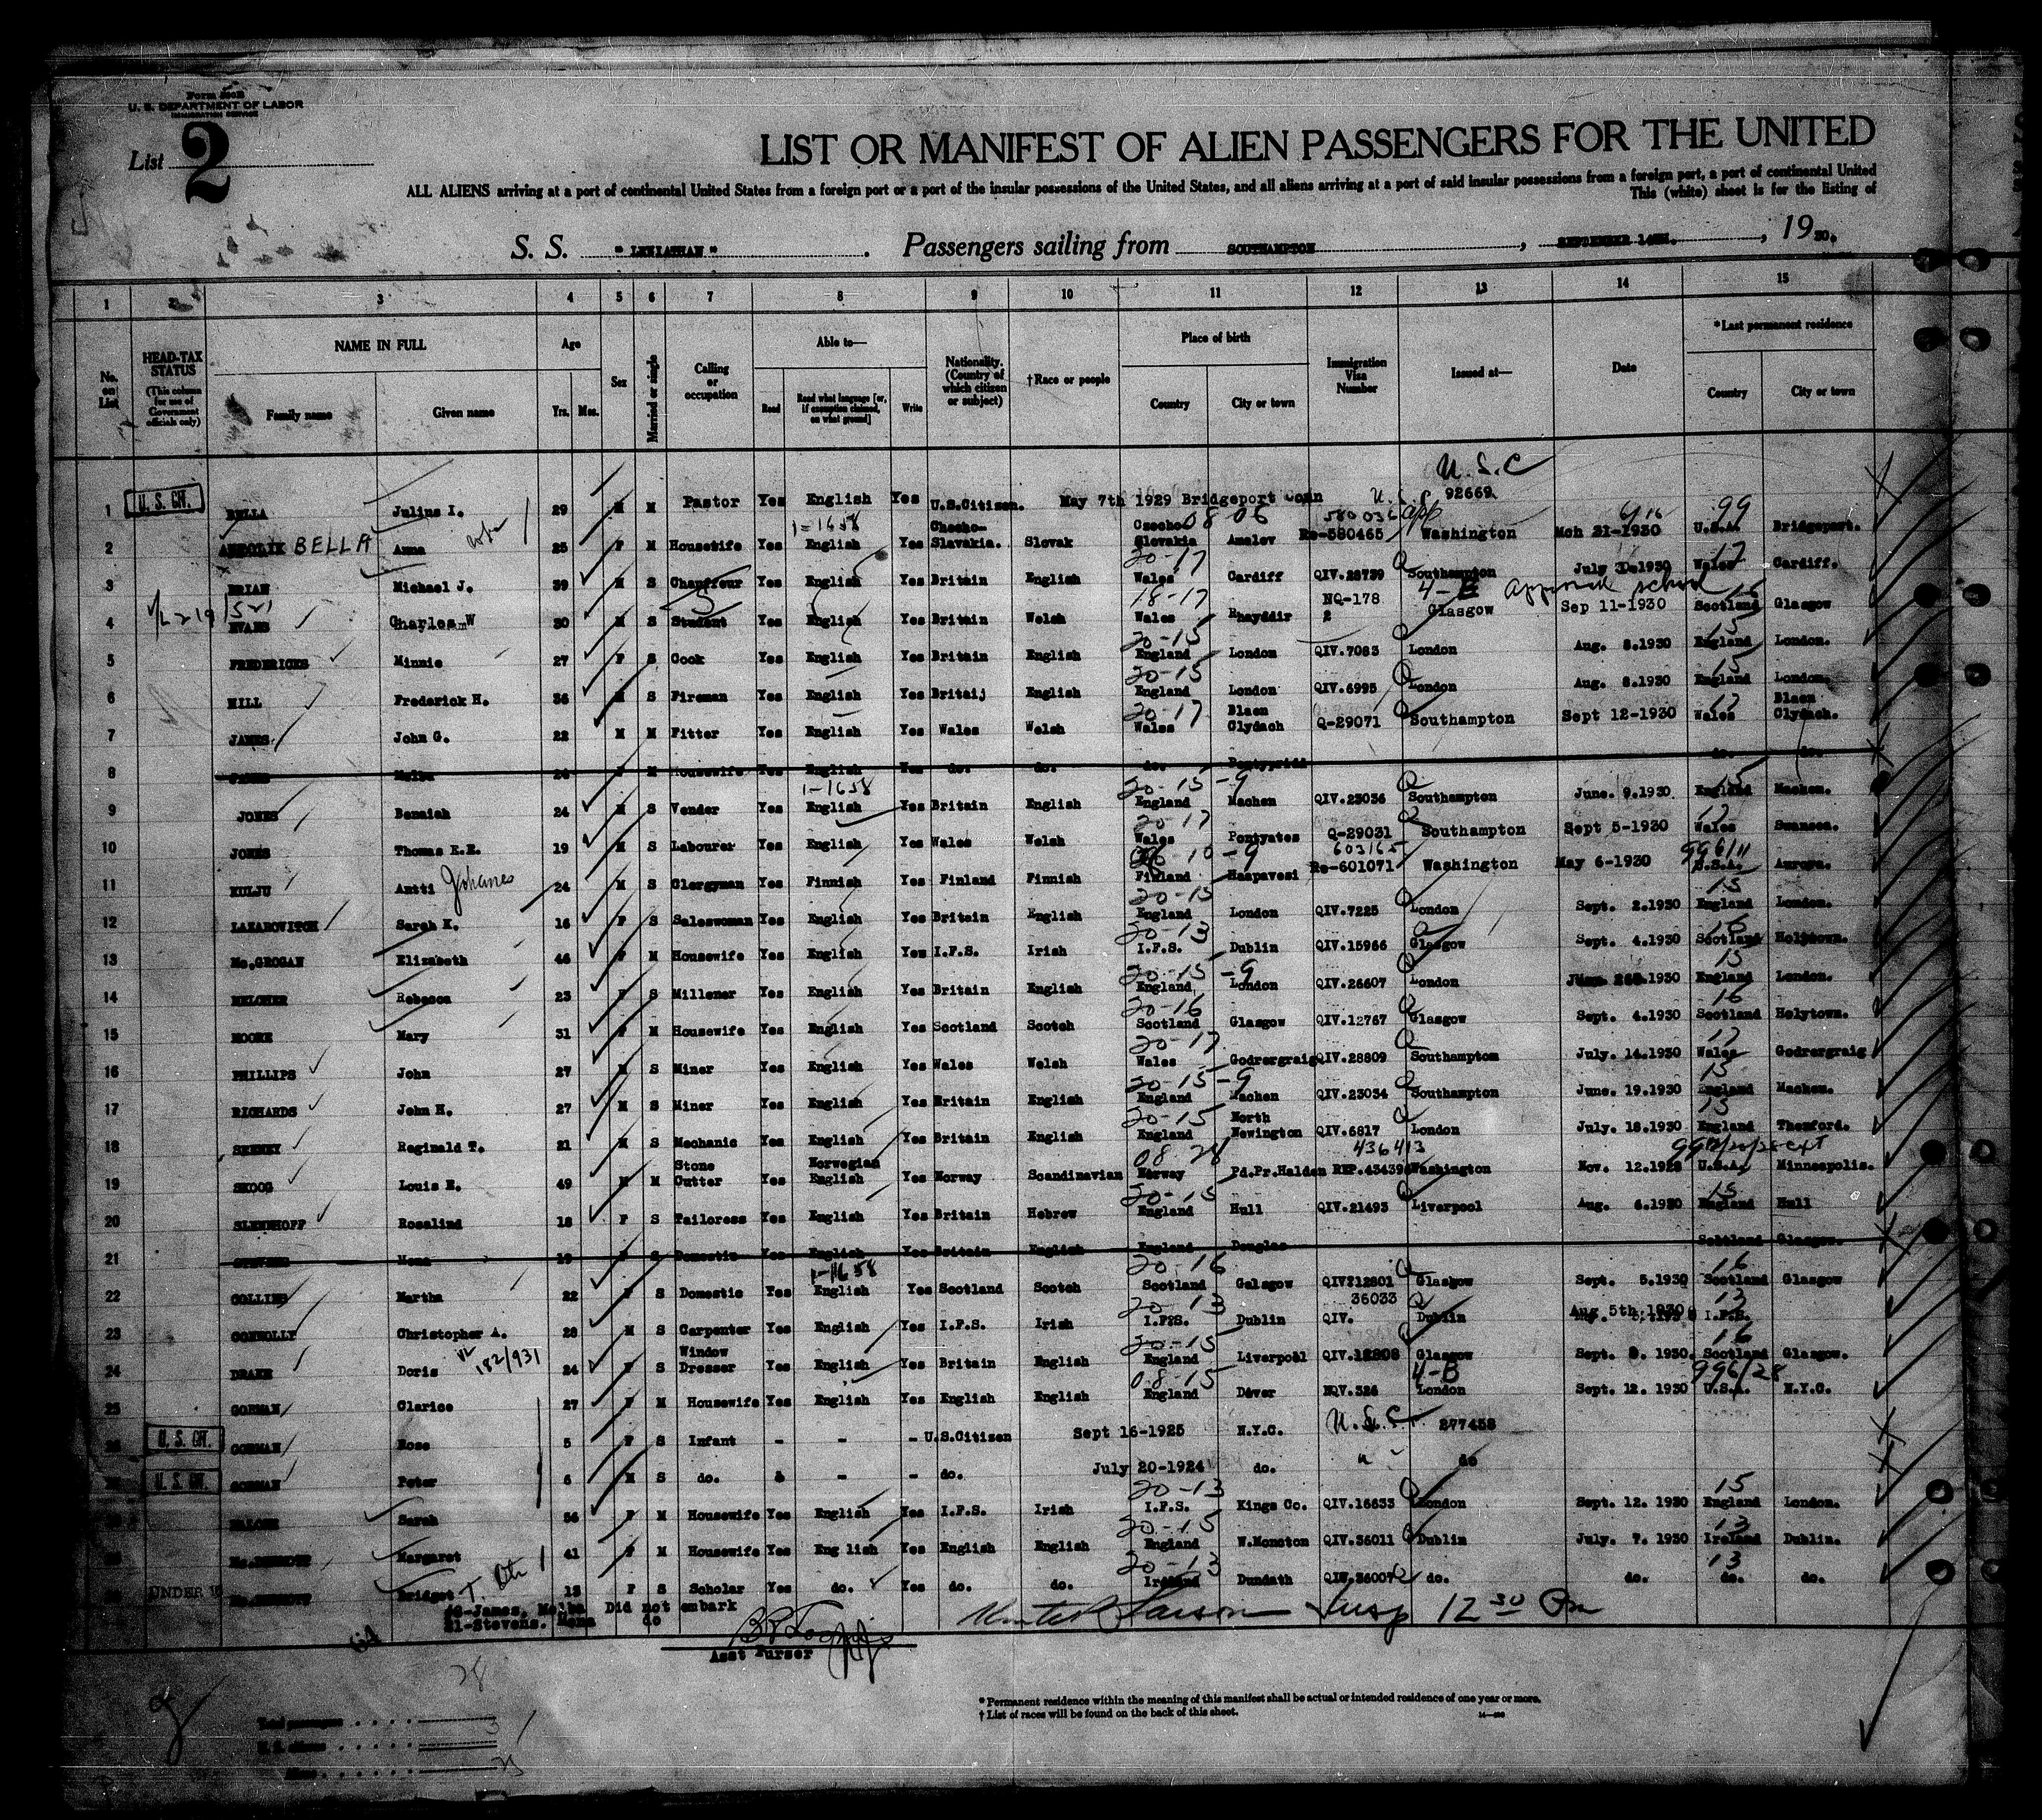 Form 500B
U. S. DEPARTMENT OF LABOR
IMMIGRATION SERVICE
List 2
LIST OR MANIFEST OF ALIEN PASSENGERS FOR THE UNITED
ALL ALIENS arriving at a port of continental United States from a foreign port or a port of the insular possessions of the United States, and all aliens arriving at a port of said insular possessions from a foreign port, a port of continental United
This (white) sheet is for the listing of
S. S. "LEVIATHAN". Passengers sailing from SOUTHAMPTON, SEPTEMBER 14th., 1930.
1 2 3 4 5 6 7 8 9 10 11 12 13 14 15
No. on List
HEAD-TAX STATUS (This column for use of Government officials only)
NAME IN FULL Family name Given name
Age Yrs. Mos.
Sex
Married or single
Calling or occupation
Able to— Read Read what language [or, if exemption claimed, on what ground] Write
Nationality. (Country of which citizen or subject)
†Race or people
Place of birth Country City or town
Immigration Visa Number
Issued at—
Date
*Last permanent residence Country City or town
U. S. C
1 U. S. CIT. BELLA Julius I. 29 M M Pastor Yes English Yes U.S.Citizen. May 7th 1929 Bridgeport Conn U.S.C 92669
2 BELLA Anna 25 F M Housewife Yes 1-1658 English Yes Checho-Slovakia. Slovak Czecho Slovakia 08 06 Amslov 580036 Re-580465 Washington Mch 21-1930 U.S.A. 99 Bridgeport.
3 BRIAN Michael J. 39 M S Chauffeur Yes English Yes Britain English 20-17 Wales Cardiff QIV.28739 Southampton July 1930 Wales 17 Cardiff.
4 EVANS Charles W 30 M S Student Yes English Yes Britain Welsh 18-17 Wales Rhayddir NQ-178 2 4-E approved school Glasgow Sep 11-1930 Scotland 16 Glasgow
5 FREDERICKS Minnie 27 F S Cook Yes English Yes Britain English 20-15 England London QIV.7083 London Aug. 8.1930 England 15 London.
6 HILL Frederick H. 36 M S Fireman Yes English Yes Britaij English 20-15 England London QIV.6995 London Aug. 8.1930 England 15 London.
7 JAMES John G. 22 M M Fitter Yes English Yes Wales Welsh 20-17 Wales Blaen Clydach Q-29071 Southampton Sept 12-1930 Wales 17 Blaen Clydach.
8 JAMES Melba 24 F M Housewife Yes English Yes do. do. do. Pontypridd do. do.
9 JONES Benaiah 24 M S Vender Yes 1-1658 English Yes Britain English 20-15-9 England Machen QIV.23036 Southampton June. 9.1930 England 15 Machen.
10 JONES Thomas E.R. 19 M S Labourer Yes English Yes Wales Welsh 20-17 Wales Pontyates Q-29031 Southampton Sept 5-1930 Wales 17 Swansea.
11 KULJU Antti Johanes 24 M S Clergyman Yes Finnish Yes Finland Finnish 10-9 Finland Haapavesi 603165 Re-601071 Washington May 6-1930 996/11 U.S.A. Aurora.
12 LAZAROVITCH Sarah K. 16 F S Saleswoman Yes English Yes Britain English 20-15 England London QIV.7225 London Sept. 2.1930 England 15 London.
13 Mc.GROGAN Elizabeth 46 F M Housewife Yes English Yes I.F.S. Irish 20-13 I.F.S. Dublin QIV.15966 Glasgow Sept. 4.1930 Scotland 16 Holytown.
14 MELCHER Rebecca 23 F S Millener Yes English Yes Britain English 20-15-9 England, London QIV.26607 London 1930 England 15 London.
15 MOORE Mary 31 F M Housewife Yes English Yes Scotland Scotch 20-16 Scotland Glasgow QIV.12767 Glasgow Sept. 4.1930 Scotland 16 Holytown.
16 PHILLIPS John 27 M S Miner Yes English Yes Wales Welsh 20-17 Wales Godrergraig QIV.28809 Southampton July. 14.1930 Wales 17 Godrergraig
17 RICHARDS John H. 27 M S Miner Yes English Yes Britain English 20-15-9 England Machen QIV.23034 Southampton June. 19.1930 England 15 Machen.
18 SEENEY Reginald T. 21 M S Mechanic Yes English Yes Britain English 20-15 England North Newington QIV.6817 London July. 18.1930 England 15 Thenford.
19 SKOOG Louis E. 49 M M Stone Cutter Yes Norwegian English Yes Norway Scandinavian 08 28 Norway Pd.Pr.Halden 436413 REP.43439 Washington Nov. 12.1928 U.S.A. Minneapolis.
20 SLENNHOFF Rosalind 18 F S Tailoress Yes English Yes Britain Hebrew 20-15 England Hull QIV.21493 Liverpool Aug. 6.1930 England 15 Hull
21 STEVENS Mona 19 F S Domestic Yes English Yes Britain English England Douglas Scotland Glasgow.
22 COLLINS Martha 22 F S Domestic Yes 1-1658 English Yes Scotland Scotch 20-16 Scotland Galsgow QIV.12801 Glasgow Sept. 5.1930 Scotland 16 Glasgow
23 CONNOLLY Christopher A. 28 M S Carpenter Yes English Yes I.F.S. Irish 20-13 I.F.S. Dublin 36033 QIV. Dublin Aug 5th.1930 I.F.S. 13
24 DRAKE Doris VL 182/931 24 F S Window Dresser Yes English Yes Britain English 20-15 England Liverpool QIV.12808 Glasgow Sept. 8. 1930. Scotland 16 Glasgow.
25 GORMAN Clarice 27 F M Housewife Yes English Yes English English 08-15 England Dover NQV.326 4-B London Sept. 12. 1930 996/28 U.S.A. N.Y.C.
26 U. S. CIT. GORMAN Rose 5 F S Infant - - - U.S.Citizen Sept 16-1925 N.Y.C. U.S.C. 277458
U. S. CIT. GORMAN Peter 6 M S do. - - - do. July 20-1924 do. " do
Sarah 56 F M Housewife Yes English Yes I.F.S. Irish 20-13 I.F.S. Kings Co. QIV.16633 London Sept. 12. 1930 England 15 London.
Mc.DERMOTT Margaret 41 F M Housewife Yes Eng lish Yes English English 20-15 England W.Moncton QIV.36011 Dublin July. 7. 1930 Ireland 13 Dublin.
UNDER 16 Mc.DERMOTT Bridget T. 13 F S Scholar Yes do. Yes do. do. 20-13 Ireland Dundath QIV.36007 do. do. do. 13 do.
James, Melba Did not embark
21-Stevens. Mona do
Insp 12 30 Pm
Asst Purser
28
* Permanent residence within the meaning of this manifest shall be actual or intended residence of one year or more.
† List of races will be found on the back of this sheet.
Total passengers
U. S. citizens
Aliens